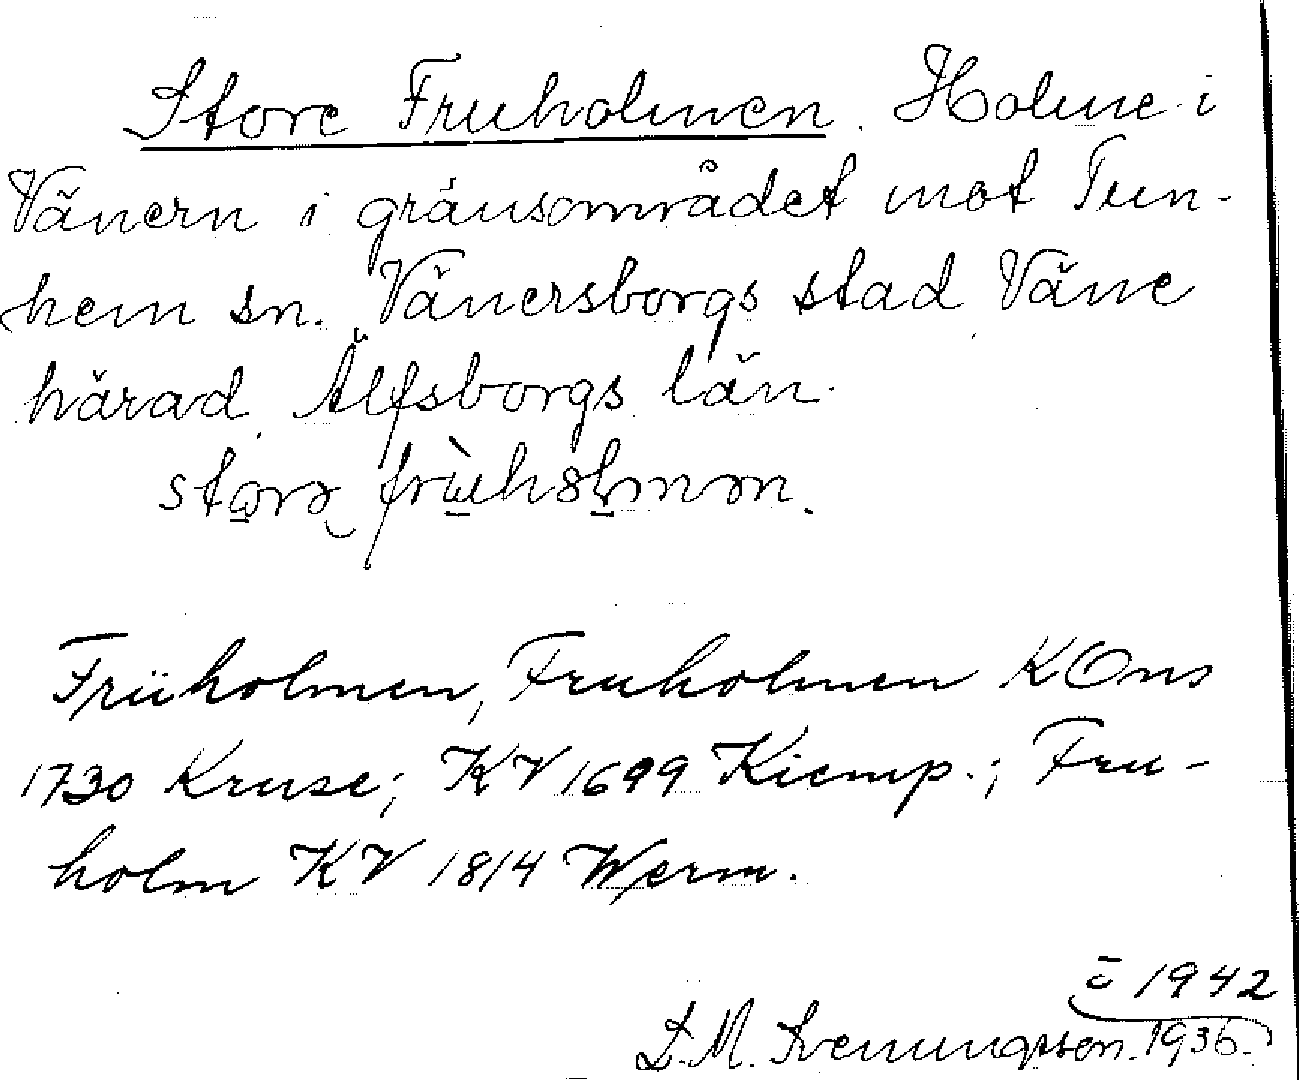 Store Fruholmen. Holme i
Vänern i gränsområdet mot Tun-
hem sn. Vänersborgs stad Väne
härad Älfsborgs län.
Früholmen, Fruholmen KOns
1730 Kruse; KV 1699 Kiemp.; Fru-
holm KV 1814 Werm.
1942
D. M. Svenungsson. 1936.